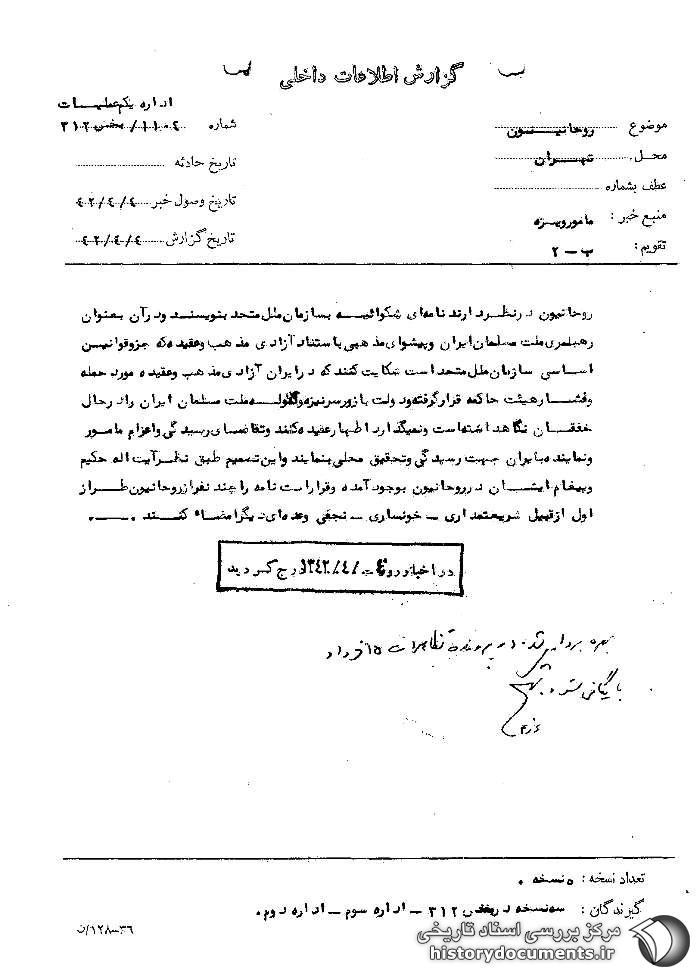 گزارش اطلاعات داخلی
اداره یکم عملیـــات
موضوع روحانیـــون
شماره ۱۱۰۲ / بخش ۳۱۲
محل تهـــران
تاریخ حادثه
عطف بشماره
تاریخ وصول خبر ۴۲/۴/۴
منبع خبر : مامور ویـژه
تاریخ گزارش ۴۲/۴/۴
تقویم : ب ــ ۲
روحانیون در نظر دارند نامه‌ای شکوائیـــه بسازمان ملل متحد بنویسند ودر آن بعنوان
رهبـری ملت مسلمان ایران وپیشوای مذهبی با استناد آزادی مذهب وعقیده که جزو قوانیـن
اساسی سازمان ملل متحد است شکایت کنند که در ایران آزادی مذهب وعقیده مورد حمله
وفشار هیئت حاکمه قرار گرفته ودولت با زور سرنیزه وگلولـــه ملت مسلمان ایران را در حال
خفقـــان نگاهداشته است ونمیگذارد اظهار عقیده کنند وتقاضـای رسیدگی واعزام مامـور
ونماینده بایران جهت رسیدگی وتحقیق محلی بنمایند واین تصمیم طبق نظر آیت اله حکیم
وپیغام ایشـــان در روحانیون بوجود آمده وقرار است نامه را چند نفر از روحانیون طـــراز
اول از قبیل شریعتمداری ــ خونساری ــ نجفی وعده‌ای دیگر امضاء کنـــند .
در اخبار روز ۱۳۴۲/۴/ درج گردید
بهره برداری شد . در پرونده تظاهرات ۱۵ خرداد
بایگانی شود .
تعداد نسخه : ۵ نسخه .
گیرندگان : سه نسخه در بخش ۳۱۲ ــ اداره سوم ــ اداره دوم .
۳۶-۱۲۸/ن
مرکز بررسی اسناد تاریخی
historydocuments.ir